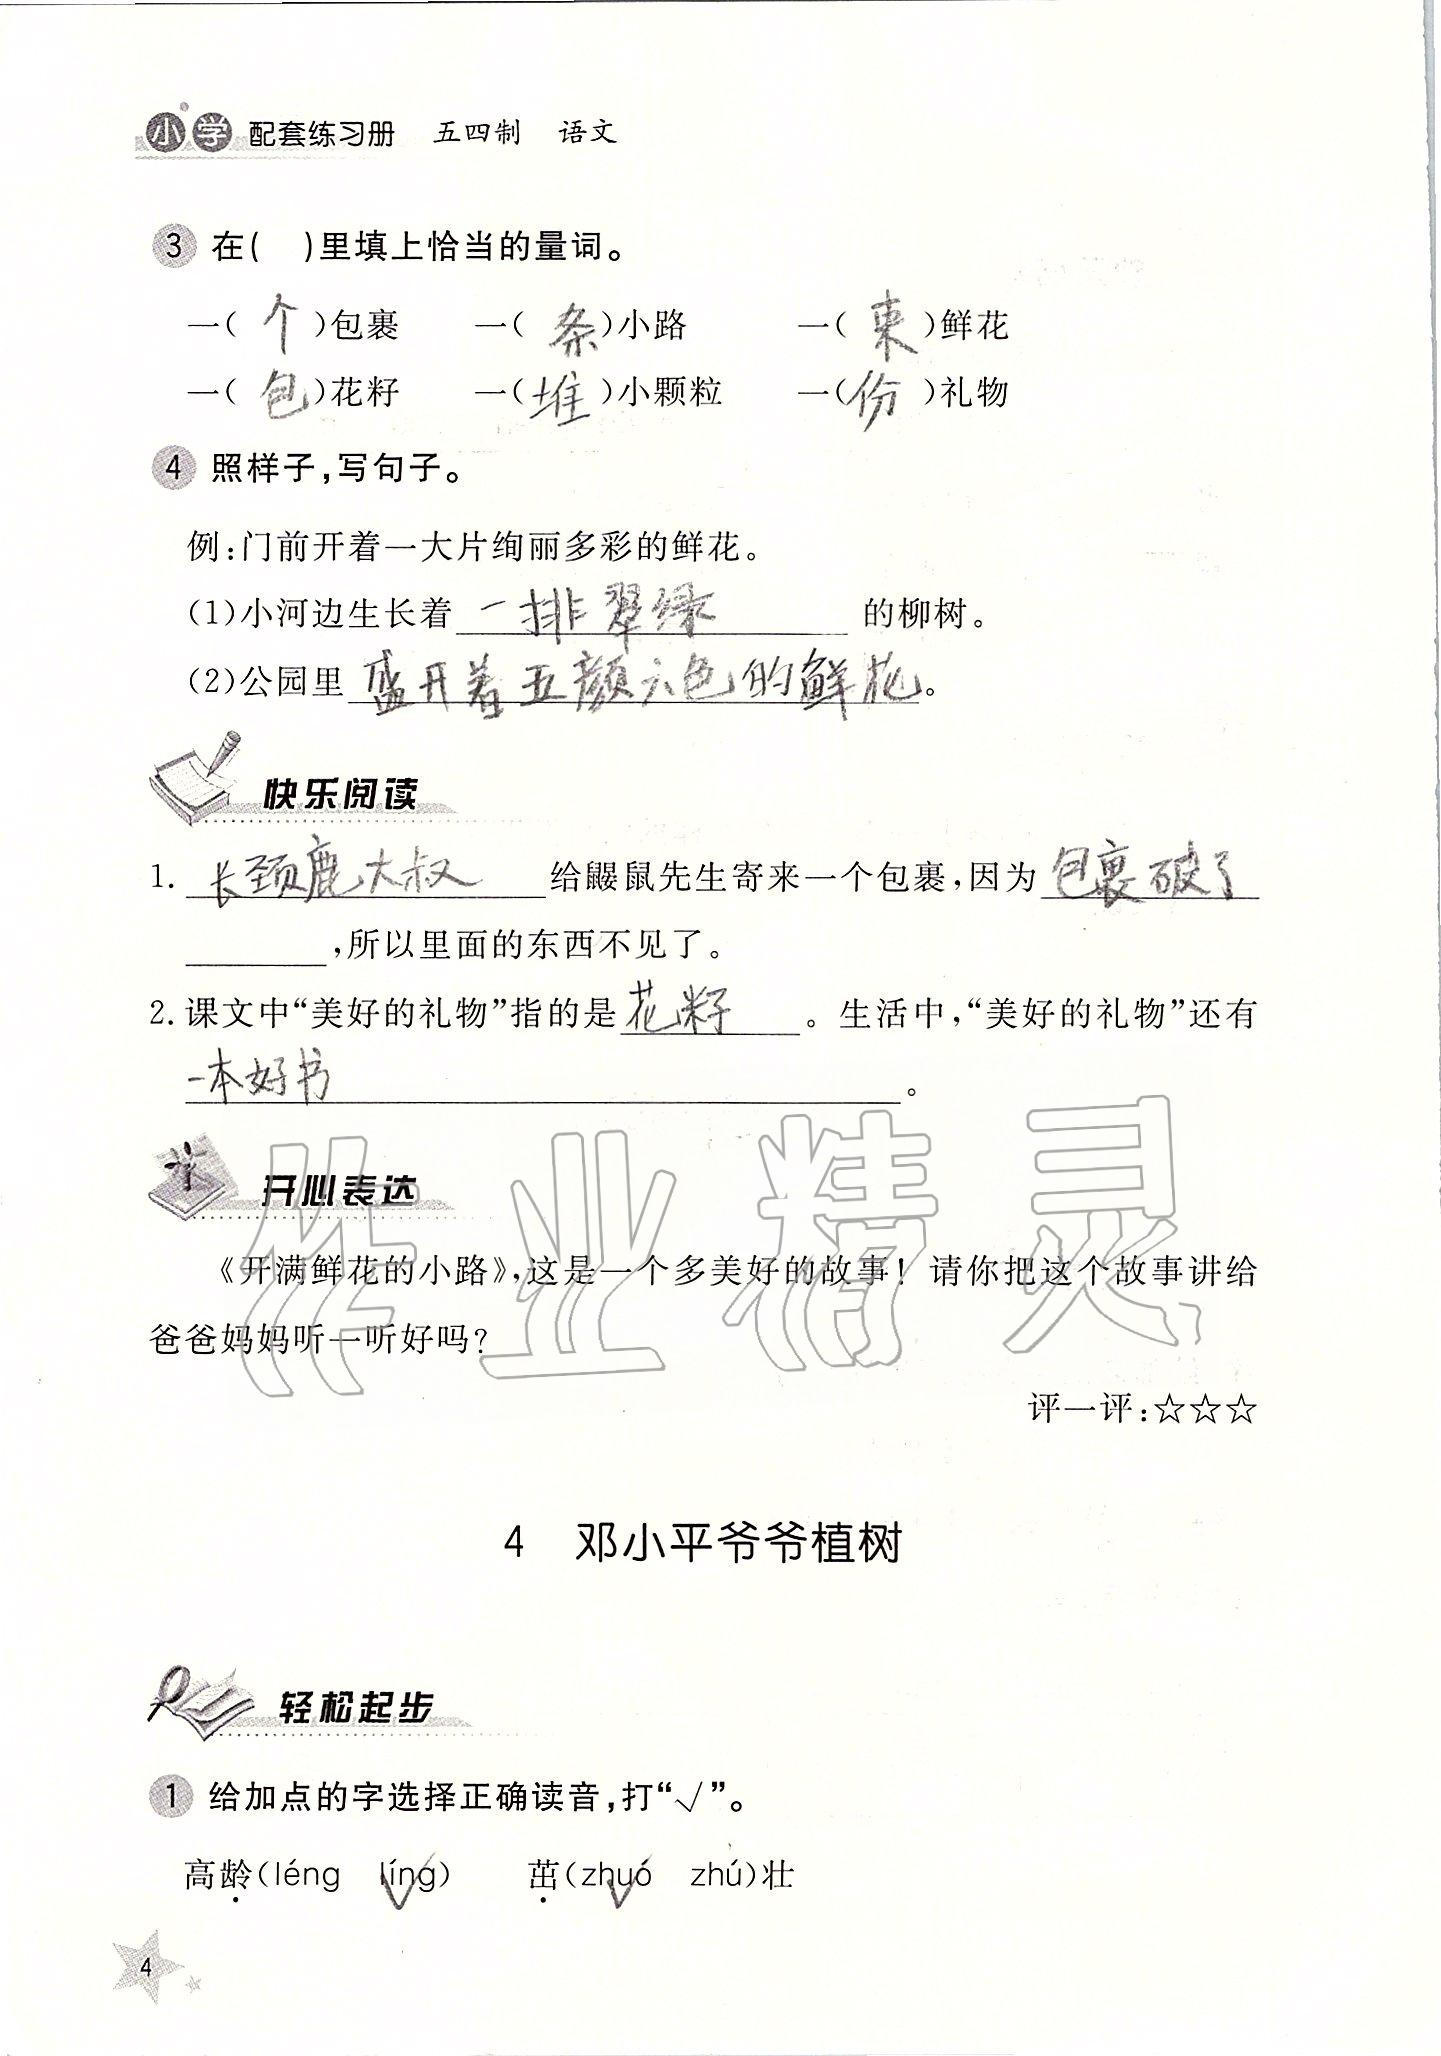 小学 配套练习册 五四制 语文
3 在( )里填上恰当的量词。
一(个)包裹 一(条)小路 一(束)鲜花
一(包)花籽 一(堆)小颗粒 一(份)礼物
4 照样子,写句子。
例:门前开着一大片绚丽多彩的鲜花。
(1)小河边生长着一排翠绿的柳树。
(2)公园里盛开着五颜六色的鲜花。
快乐阅读
1. 长颈鹿大叔给鼹鼠先生寄来一个包裹,因为包裹破了
,所以里面的东西不见了。
2. 课文中“美好的礼物”指的是花籽。生活中,“美好的礼物”还有
一本好书。
开心表达
《开满鲜花的小路》,这是一个多美好的故事!请你把这个故事讲给
爸爸妈妈听一听好吗?
作业精灵
评一评:☆☆☆
4 邓小平爷爷植树
轻松起步
1 给加点的字选择正确读音,打“√”。
高龄(léng líng√) 茁(zhuó√ zhú)壮
4